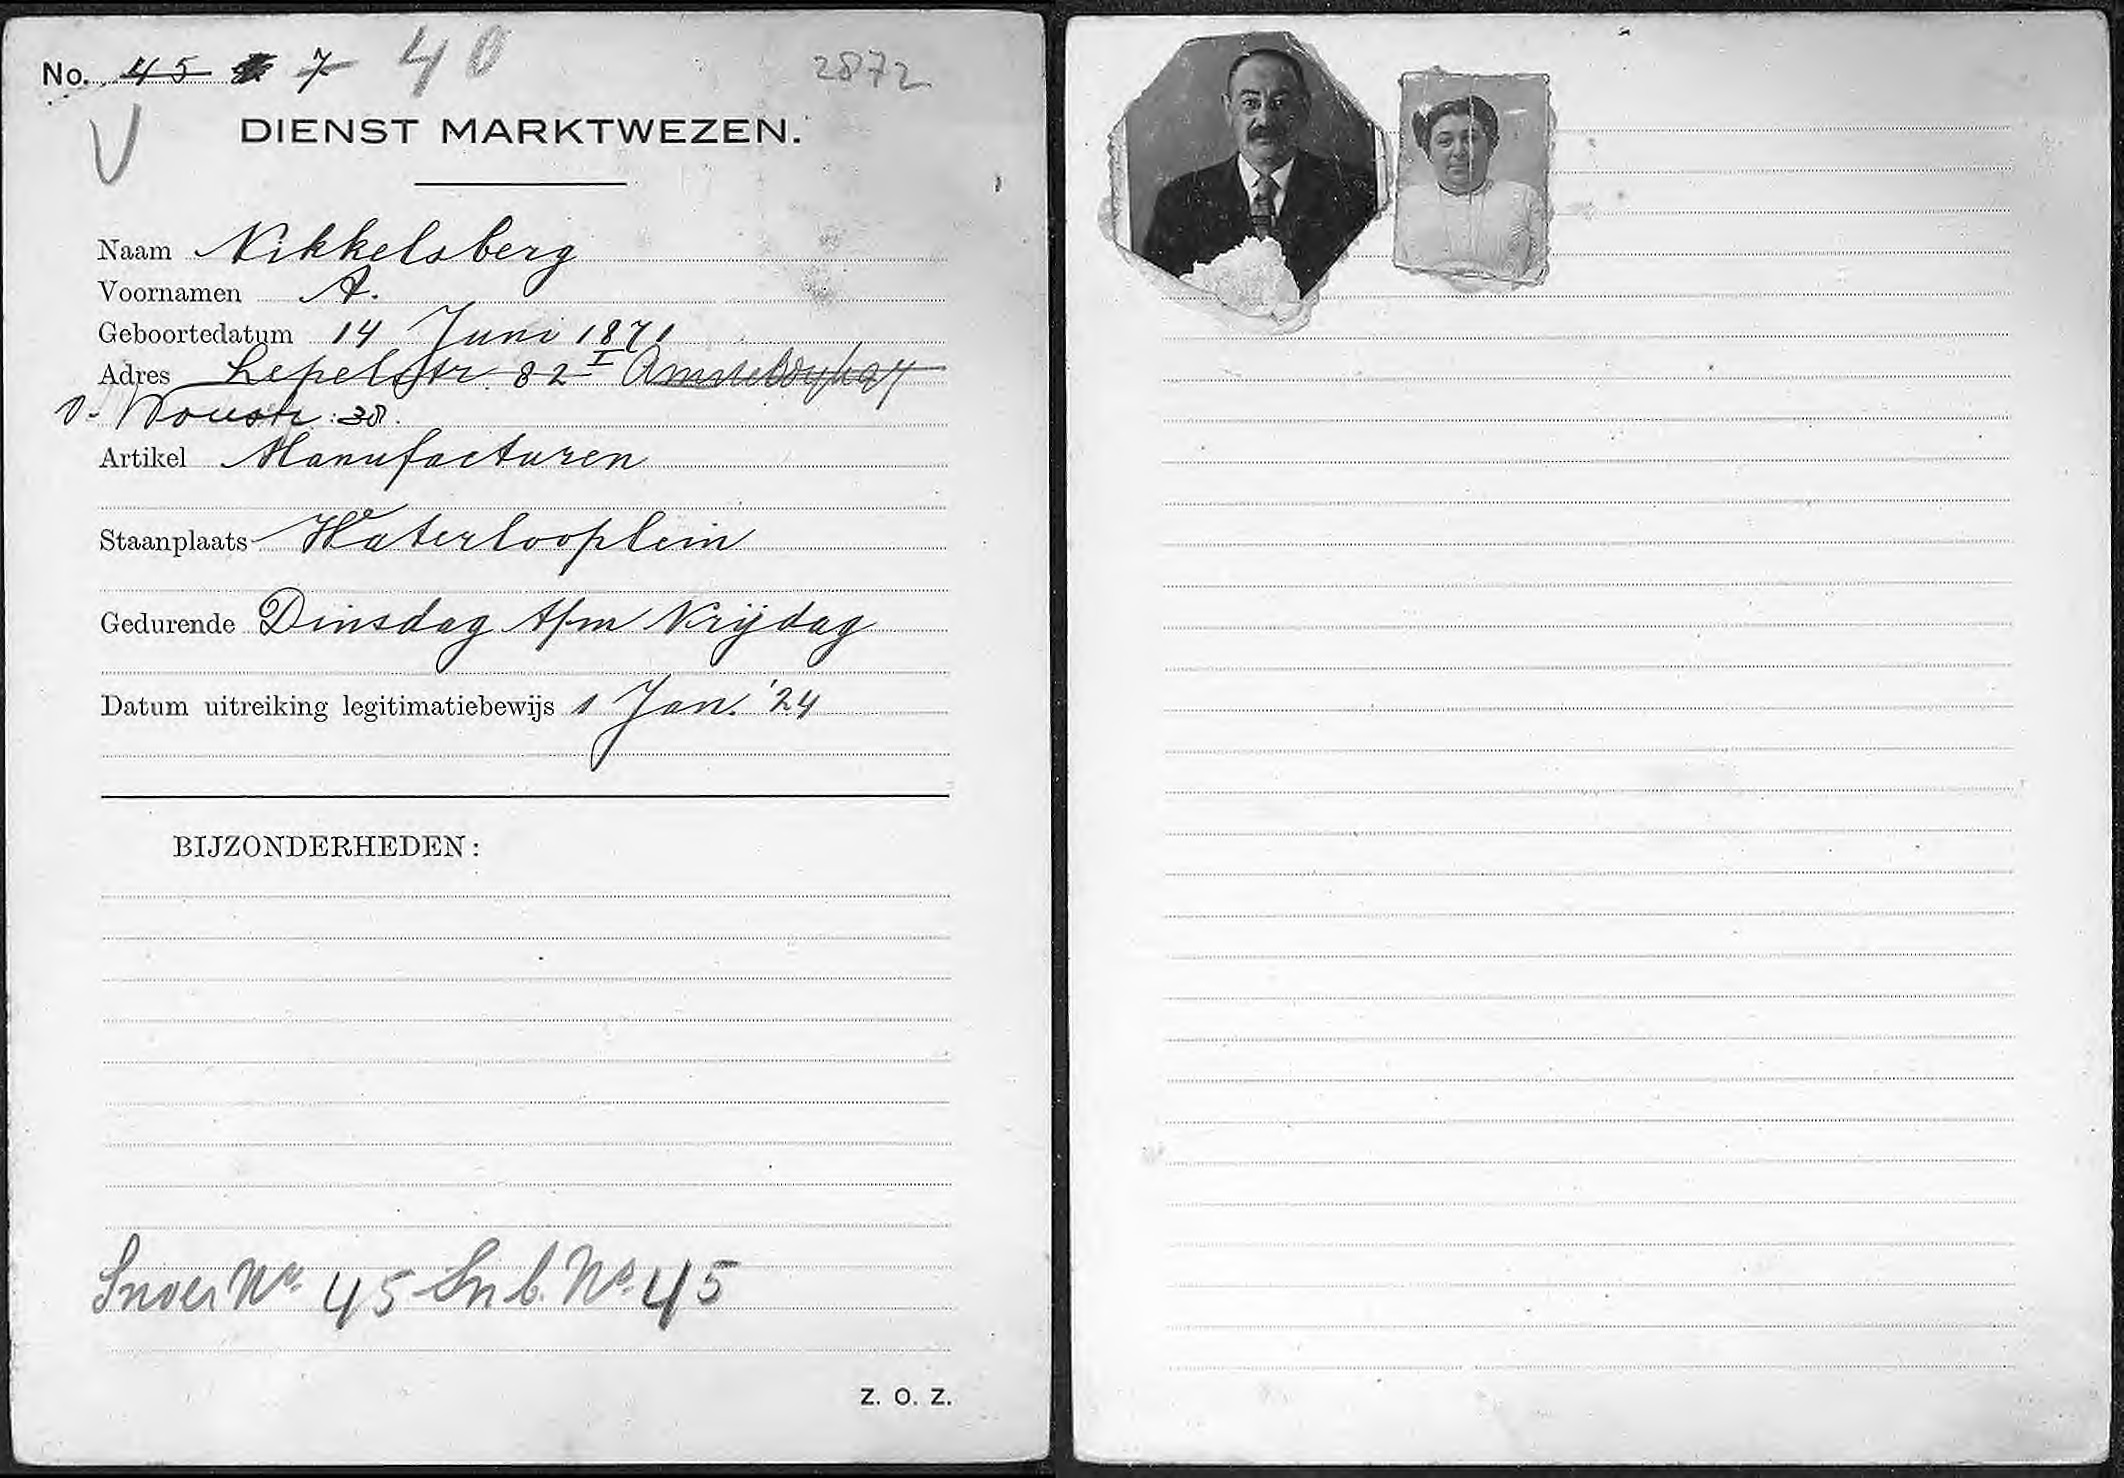 No. 45 7 40 2872
V
DIENST MARKTWEZEN.
Naam Nikkelsberg
Voornamen A.
Geboortedatum 14 Juni 1871
Adres Lepelstr. 82 I Amsteldijk 97
v. Woustr: 38.
Artikel Manufacturen
Staanplaats Waterlooplein
Gedurende Dinsdag t/m Vrijdag
Datum uitreiking legitimatiebewijs 1 Jan. '24
BIJZONDERHEDEN:
Snoer No. 45 Snb. No. 45
Z. O. Z.